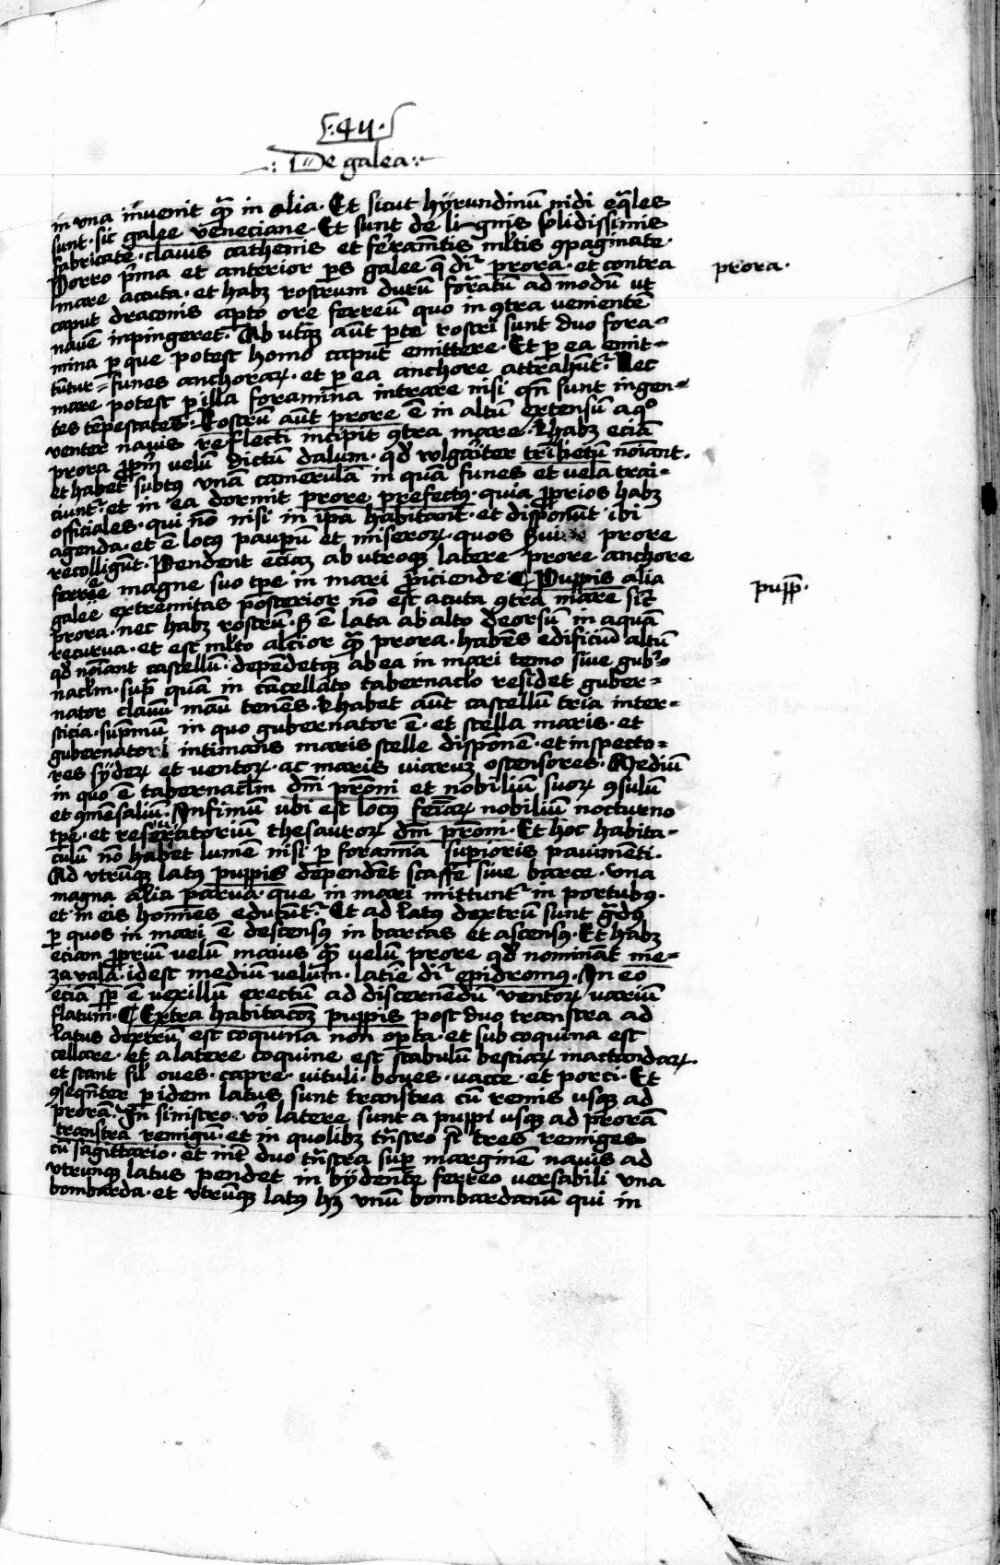 ·4ii·
De galea
in una invenit q̄ꝫ in alia · Et sicut hÿrundinū nidi eq̄les
sunt · sic galee veneciane · Et sunt de li-gnis solidissimis
fabricate · clauis cathenis et ferramētis ml̄tis ꝯpaginate ·
Porro p̄ma et anterior ps galee q̄ dr̄ prora · et contra
prora ·
mare acuta · et habꝫ rostrum durū foratū ad modū ut
caput draconis apto ore ferreū quo in ꝯtra venientē
nauē inpingeret · Ab utꝫ aūt pte rostri sunt duo fora-
mina ꝑ que potest homo caput emittere · Et ꝑ ea emit-
tūtur funes anchoraꝝ · et ꝑ ea anchore attrahūt᷑ · Nec
mare potest ꝑ illa foramina intrare nisi qn̄ sunt ingen-
tes tēpestates · Rostrū aūt prore ē in altū extensū a qͦ
venter nauis reflecti incipit ꝯtra mare · Habꝫ eciā
prora ꝓpriū velū dictū dalum · qd̄ volgariter trīketū noīant ·
et habet subtꝰ unā camerulā in quā funes et vela trai-
ciunt᷑ · et in ea dormit prore prefectꝰ · quia ꝓprios habꝫ
officiales · qui nō nisi in ip̄a habitant · et disponūt ibi
agenda · et ē locꝰ paupū et miseroꝝ · quos prore
recolligūt · Pendent eciā ab utroqꝫ latere prore anchore
ferree magne suo tpe in mari ꝓiciende ¶ Puppis alia
pupp̄ ·
galee extremitas posterior nō est acuta ꝯtra mare sic̄
prora · nec habꝫ rostrū · ꝫ ē lata ab alto deorsū in aquā
recurua · et est ml̄to alcior q̄ꝫ prora · habēs edificiū altū
qd̄ noīant castellū · depēdetqꝫ ab ea in mari temo siue gub᷑-
nacl̄m · sup̄ quā in cācellato tabernacl̄o residet guber-
nator clauū manū tenēs · Habet aūt castellū tria inter-
sticia · sup̄mū in quo gubernator ē · et stella maris · et
gubernatori intimans maris stelle disponē · et inspecto-
res sÿdeꝝ et ventoꝝ · ac maris viarum ostensores · Mediū
in quo ē tabernacl̄m dn̄i pr̄oni et nobiliū suoꝝ ꝯsulū
et ꝯmēsaliū · Infimū ubi est locꝰ feīaꝝ nobiliū nocturno
tpe · et reseruatoriū thesauroꝝ dn̄i pr̄oni · Et hoc habita-
culū nō habet lumē nisi ꝑ foramina supioris pauimēti ·
Ad utrūqꝫ latꝰ puppis depēdēt scaffe siue barce · una
magna alia parua · que in mari mittunt᷑ in portubꝰ ·
et in eis hoīes educūt᷑ · Et ad latꝰ dextrū sunt gͣdꝰ
ꝑ quos in mari ē descensꝰ in barcas et ascensꝰ · Et habꝫ
eciam ꝓpriū velū maius q̄ꝫ velū prore qd̄ nominat me-
zauala · id est mediū velum · latīe dr̄ epidromꝰ · In eo
eciā sp̄ ē vexillū erectū ad discernendū ventoꝝ variū
flatum · ¶ Extra habitacōꝫ puppis post duo transtra ad
latus dextrū est coquina non opta · et sub coquina est
cellare · et a latere coquine est stabulū bestiaꝝ mactandaꝝ ·
et stant sil̄ oues · capre · vituli · boues · vacce · et porci · Et
ꝯseqn̄ter ꝑ idem latus sunt transtra cū remis usqꝫ ad
prorā · In sinistro v̊o latere sunt a puppi usqꝫ ad prorā
transtra remigū · et in quolibꝫ tn̄stro sē tres remiges
cū sagittario · et int᷑ duo tn̄stra sup marginē nauis ad
utrunqꝫ latus pendet in bÿdente ferreo versabili una
bombarda · et utrūqꝫ latꝰ hꝫ unū bombardanū qui in